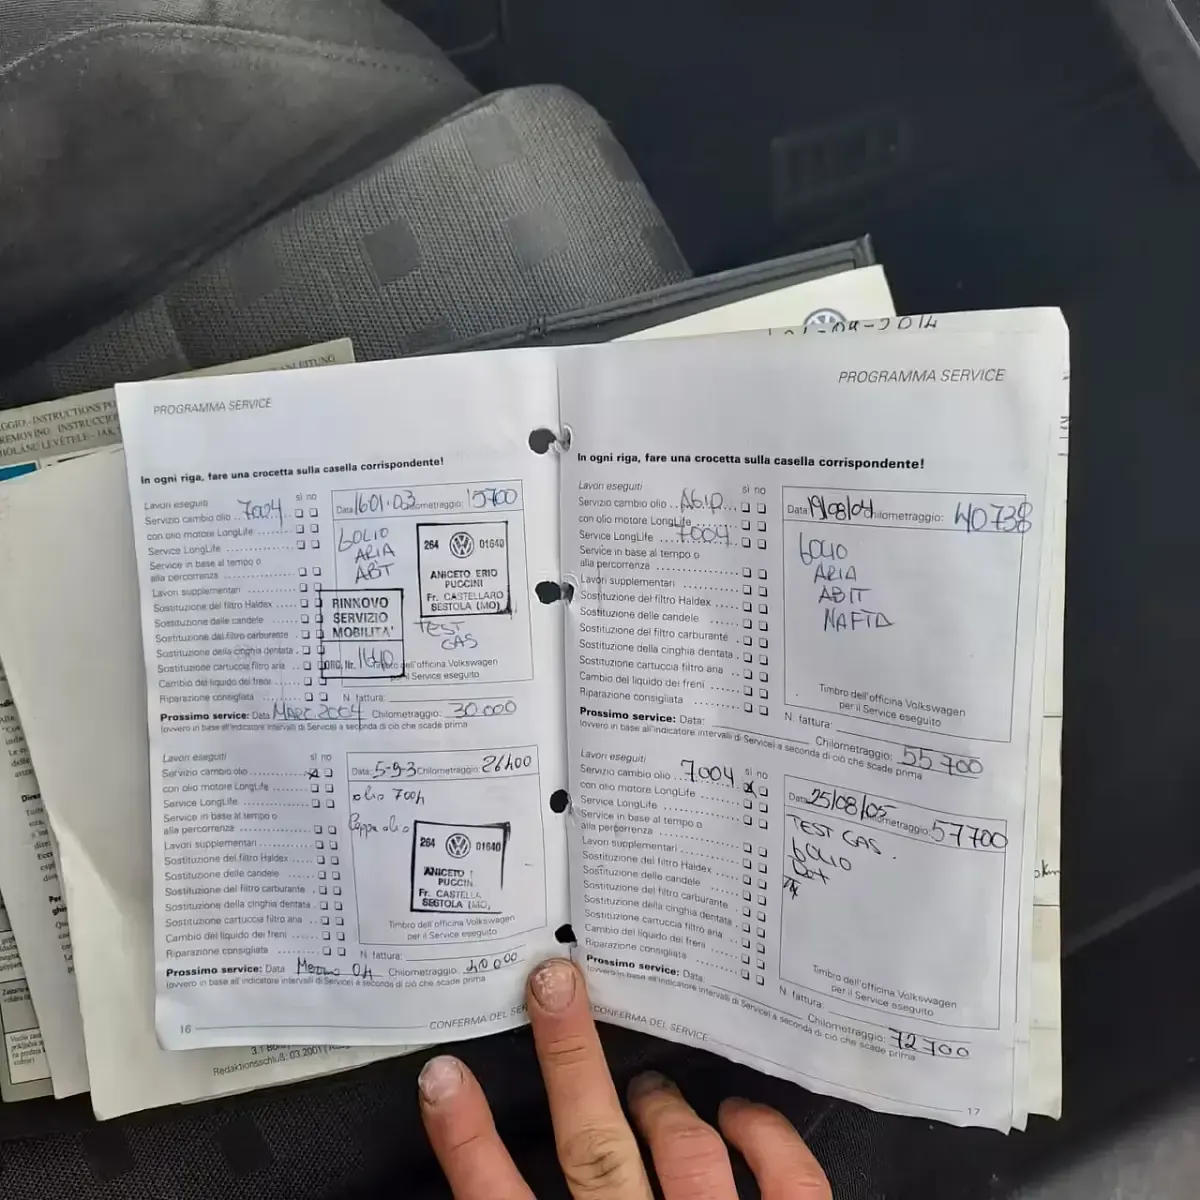 -09-2014
PROGRAMMA SERVICE
In ogni riga, fare una crocetta sulla casella corrispondente!
Lavori eseguiti sì no
Servizio cambio olio .. 7004
con olio motore LongLife
Service LongLife
Service in base al tempo o
alla percorrenza
Lavori supplementari
Sostituzione del filtro Haldex
Sostituzione delle candele
Sostituzione del filtro carburante
Sostituzione della cinghia dentata
Sostituzione cartuccia filtro aria
Cambio del liquido dei freni
Riparazione consigliata
Data 1601.03 Chilometraggio: 15700
ARIA
ABT
264 01640
ANICETO ERIO
PUCCINI
Fr. CASTELLARO
SESTOLA (MO)
RINNOVO
SERVIZIO
MOBILITA'
ORG. Nr. 1640
TEST
GAS
Timbro dell'officina Volkswagen
per il Service eseguito
N. fattura:
Prossimo service: Data 2004 Chilometraggio: 30.000
(ovvero in base all'indicatore intervalli di Service) a seconda di ciò che scade prima
Lavori eseguiti sì no
Servizio cambio olio
con olio motore LongLife
Service LongLife
Service in base al tempo o
alla percorrenza
Lavori supplementari
Sostituzione del filtro Haldex
Sostituzione delle candele
Sostituzione del filtro carburante
Sostituzione della cinghia dentata
Sostituzione cartuccia filtro aria
Cambio del liquido dei freni
Riparazione consigliata
Data: 5-9-3 Chilometraggio: 26400
olio 7004
264 01640
ANICETO
PUCCIN
Fr. CASTELLA
SESTOLA (MO)
Timbro dell'officina Volkswagen
per il Service eseguito
N. fattura:
Prossimo service: Data 04 Chilometraggio: 40000
(ovvero in base all'indicatore intervalli di Service) a seconda di ciò che scade prima
16 CONFERMA DEL SE
Redaktionsschluß: 03.2001
PROGRAMMA SERVICE
In ogni riga, fare una crocetta sulla casella corrispondente!
Lavori eseguiti sì no
Servizio cambio olio
con olio motore LongLife
Service LongLife 7004
Service in base al tempo o
alla percorrenza
Lavori supplementari
Sostituzione del filtro Haldex
Sostituzione delle candele
Sostituzione del filtro carburante
Sostituzione della cinghia dentata
Sostituzione cartuccia filtro aria
Cambio del liquido dei freni
Riparazione consigliata
Data 19/08/04 Chilometraggio: 40738
ARIA
NAFTA
Timbro dell'officina Volkswagen
per il Service eseguito
N. fattura:
Prossimo service: Data: Chilometraggio: 55700
(ovvero in base all'indicatore intervalli di Service) a seconda di ciò che scade prima
Lavori eseguiti sì no
Servizio cambio olio 7004
con olio motore LongLife
Service LongLife
Service in base al tempo o
alla percorrenza
Lavori supplementari
Sostituzione del filtro Haldex
Sostituzione delle candele
Sostituzione del filtro carburante
Sostituzione della cinghia dentata
Sostituzione cartuccia filtro aria
Cambio del liquido dei freni
Riparazione consigliata
Data 25/08/05 Chilometraggio: 57700
TEST GAS
Timbro dell'officina Volkswagen
per il Service eseguito
N. fattura:
Prossimo service: Data: Chilometraggio: 72700
(ovvero in base all'indicatore intervalli di Service) a seconda di ciò che scade prima
CONFERMA DEL SERVICE 17